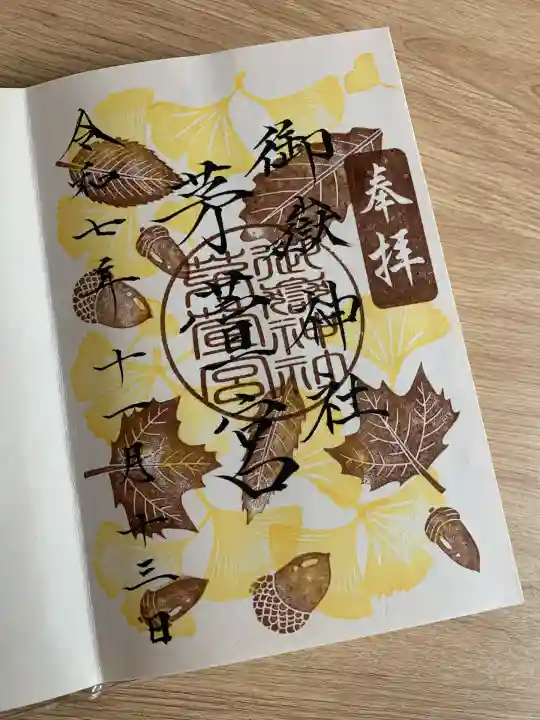 奉拝
御嶽神社
茅萱宮
令和七年十一月十三日